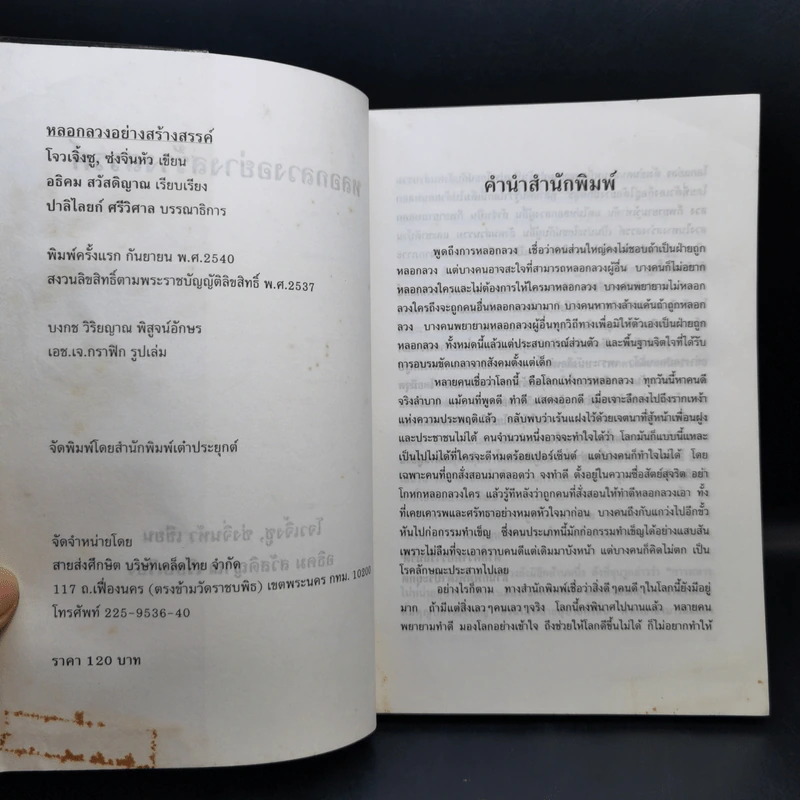 หลอกลวงอย่างสร้างสรรค์
โจวเจิ้งซู, ซ่งจิ่นหัว เขียน
อธิคม สวัสดิญาณ เรียบเรียง
ปาลิไลยก์ ศรีวิศาล บรรณาธิการ
พิมพ์ครั้งแรก กันยายน พ.ศ.2540
สงวนลิขสิทธิ์ตามพระราชบัญญัติลิขสิทธิ์ พ.ศ.2537
บงกช วิริยญาณ พิสูจน์อักษร
เอช.เจ.กราฟิก รูปเล่ม
จัดพิมพ์โดยสำนักพิมพ์เต๋าประยุกต์
จัดจำหน่ายโดย
สายส่งศึกษิต บริษัทเคล็ดไทย จำกัด
117 ถ.เฟื่องนคร (ตรงข้ามวัดราชบพิธ) เขตพระนคร กทม. 10200
โทรศัพท์ 225-9536-40
ราคา 120 บาท
คำนำสำนักพิมพ์
พูดถึงการหลอกลวง เชื่อว่าคนส่วนใหญ่คงไม่ชอบถ้าเป็นฝ่ายถูก
หลอกลวง แต่บางคนอาจสะใจที่สามารถหลอกลวงผู้อื่น บางคนก็ไม่อยาก
หลอกลวงใครและไม่ต้องการให้ใครมาหลอกลวง บางคนพยายามไม่หลอก
ลวงใครถึงจะถูกคนอื่นหลอกลวงมามาก บางคนหาทางล้างแค้นถ้าถูกหลอก
ลวง บางคนพยายามหลอกลวงผู้อื่นทุกวิถีทางเพื่อมิให้ตัวเองเป็นฝ่ายถูก
หลอกลวง ทั้งหมดนี้แล้วแต่ประสบการณ์ส่วนตัว และพื้นฐานจิตใจที่ได้รับ
การอบรมขัดเกลาจากสังคมตั้งแต่เด็ก
หลายคนเชื่อว่าโลกนี้ คือโลกแห่งการหลอกลวง ทุกวันนี้หาคนดี
จริงลำบาก แม้คนที่พูดดี ทำดี แสดงออกดี เมื่อเจาะลึกลงไปถึงรากเหง้า
แห่งความประพฤติแล้ว กลับพบว่าเร้นแฝงไว้ด้วยเจตนาที่สู้หน้าเพื่อนฝูง
และประชาชนไม่ได้ คนจำนวนหนึ่งอาจจะทำใจได้ว่า โลกมันก็แบบนี้แหละ
เป็นไปไม่ได้ที่ใครจะดีหมดร้อยเปอร์เซ็นต์ แต่บางคนก็ทำใจไม่ได้ โดย
เฉพาะคนที่ถูกสั่งสอนมาตลอดว่า จงทำดี ตั้งอยู่ในความซื่อสัตย์สุจริต อย่า
โกหกหลอกลวงใคร แล้วรู้ทีหลังว่าถูกคนที่สั่งสอนให้ทำดีหลอกลวงเอา ทั้ง
ที่เคยเคารพและศรัทธาอย่างหมดหัวใจมาก่อน บางคนถึงกับแกว่งไปอีกขั้ว
หันไปก่อกรรมทำเข็ญ ซึ่งคนประเภทนี้มักก่อกรรมทำเข็ญได้อย่างแสบสัน
เพราะไม่ลืมที่จะเอาคราบคนดีแต่เดิมมาบังหน้า แต่บางคนก็คิดไม่ตก เป็น
โรคลักษณะประสาทไปเลย
อย่างไรก็ตาม ทางสำนักพิมพ์เชื่อว่าสิ่งดีๆคนดีๆในโลกนี้ยังมีอยู่
มาก ถ้ามีแต่สิ่งเลวๆคนเลวๆจริง โลกนี้คงพินาศไปนานแล้ว หลายคน
พยายามทำดี มองโลกอย่างเข้าใจ ถึงช่วยให้โลกดีขึ้นไม่ได้ ก็ไม่อยากทำให้